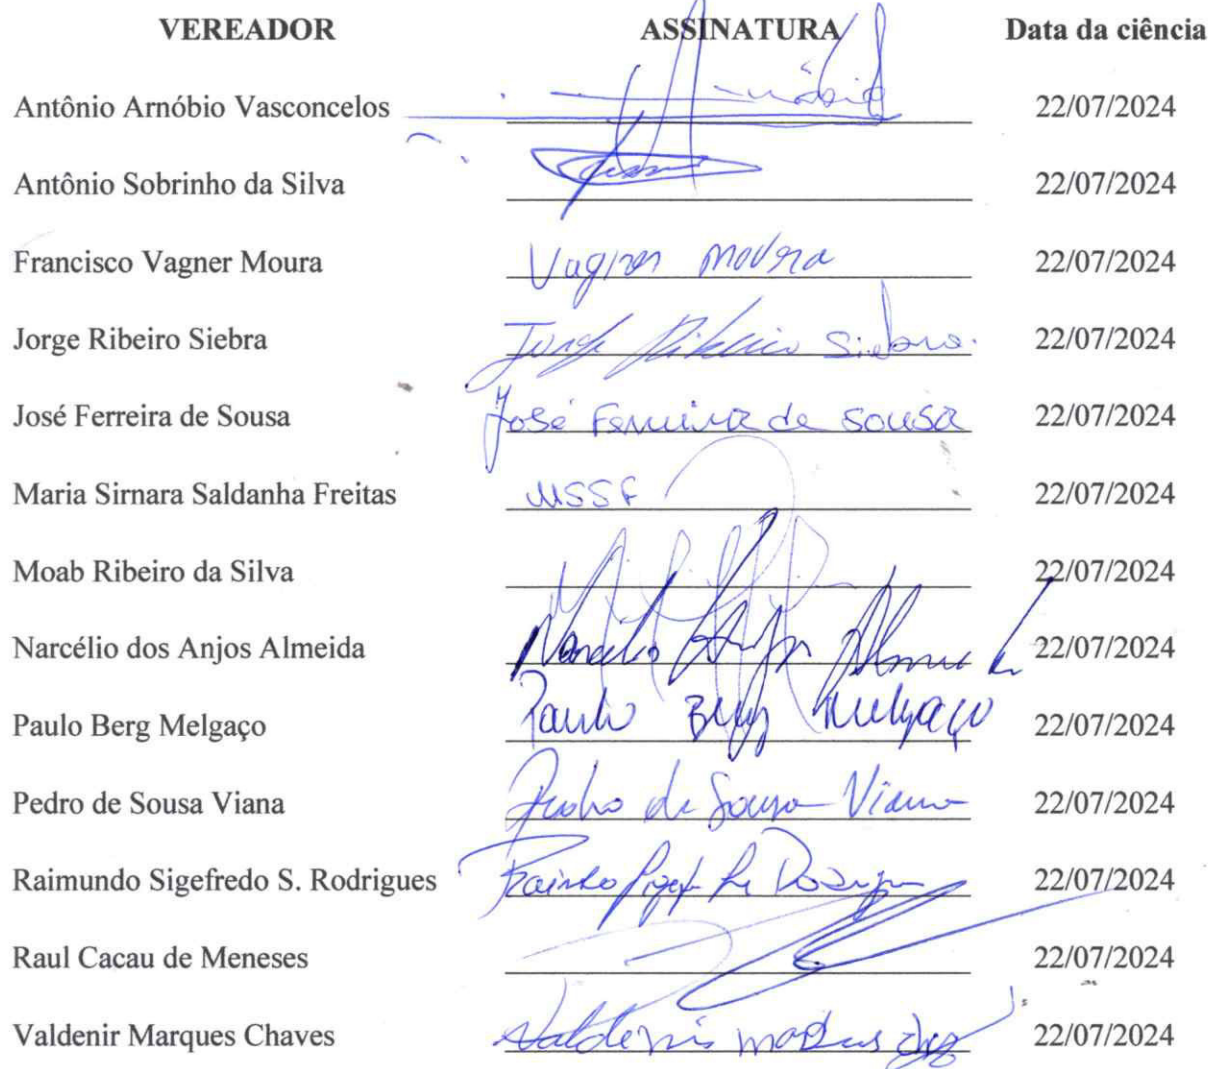 VEREADOR ASSINATURA Data da ciência
Antônio Arnóbio Vasconcelos 22/07/2024
Antônio Sobrinho da Silva 22/07/2024
Francisco Vagner Moura Vagner Moura 22/07/2024
Jorge Ribeiro Siebra Jorge Ribeiro Siebra. 22/07/2024
José Ferreira de Sousa José Ferreira de Sousa 22/07/2024
Maria Sirnara Saldanha Freitas MSSF 22/07/2024
Moab Ribeiro da Silva 22/07/2024
Narcélio dos Anjos Almeida Narcelio Almeida 22/07/2024
Paulo Berg Melgaço Paulo Berg Melgaço 22/07/2024
Pedro de Sousa Viana Pedro de Sousa Viana 22/07/2024
Raimundo Sigefredo S. Rodrigues 22/07/2024
Raul Cacau de Meneses 22/07/2024
Valdenir Marques Chaves Valdenir 22/07/2024